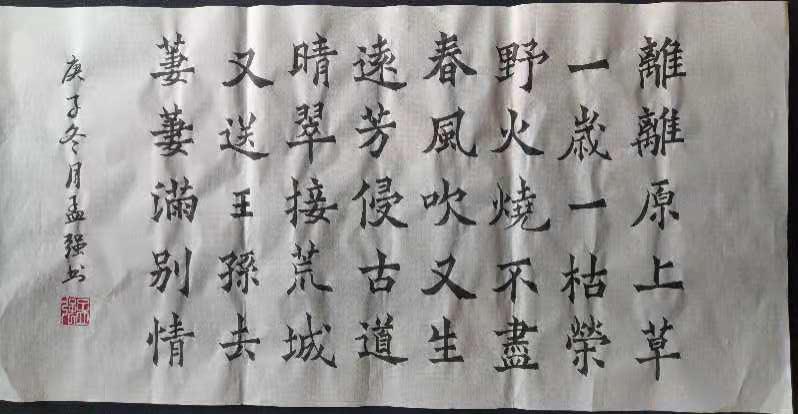 離離原上草
一歲一枯榮
野火燒不盡
春風吹又生
遠芳侵古道
晴翠接荒城
又送王孫去
萋萋滿別情
庚子冬月孟强书